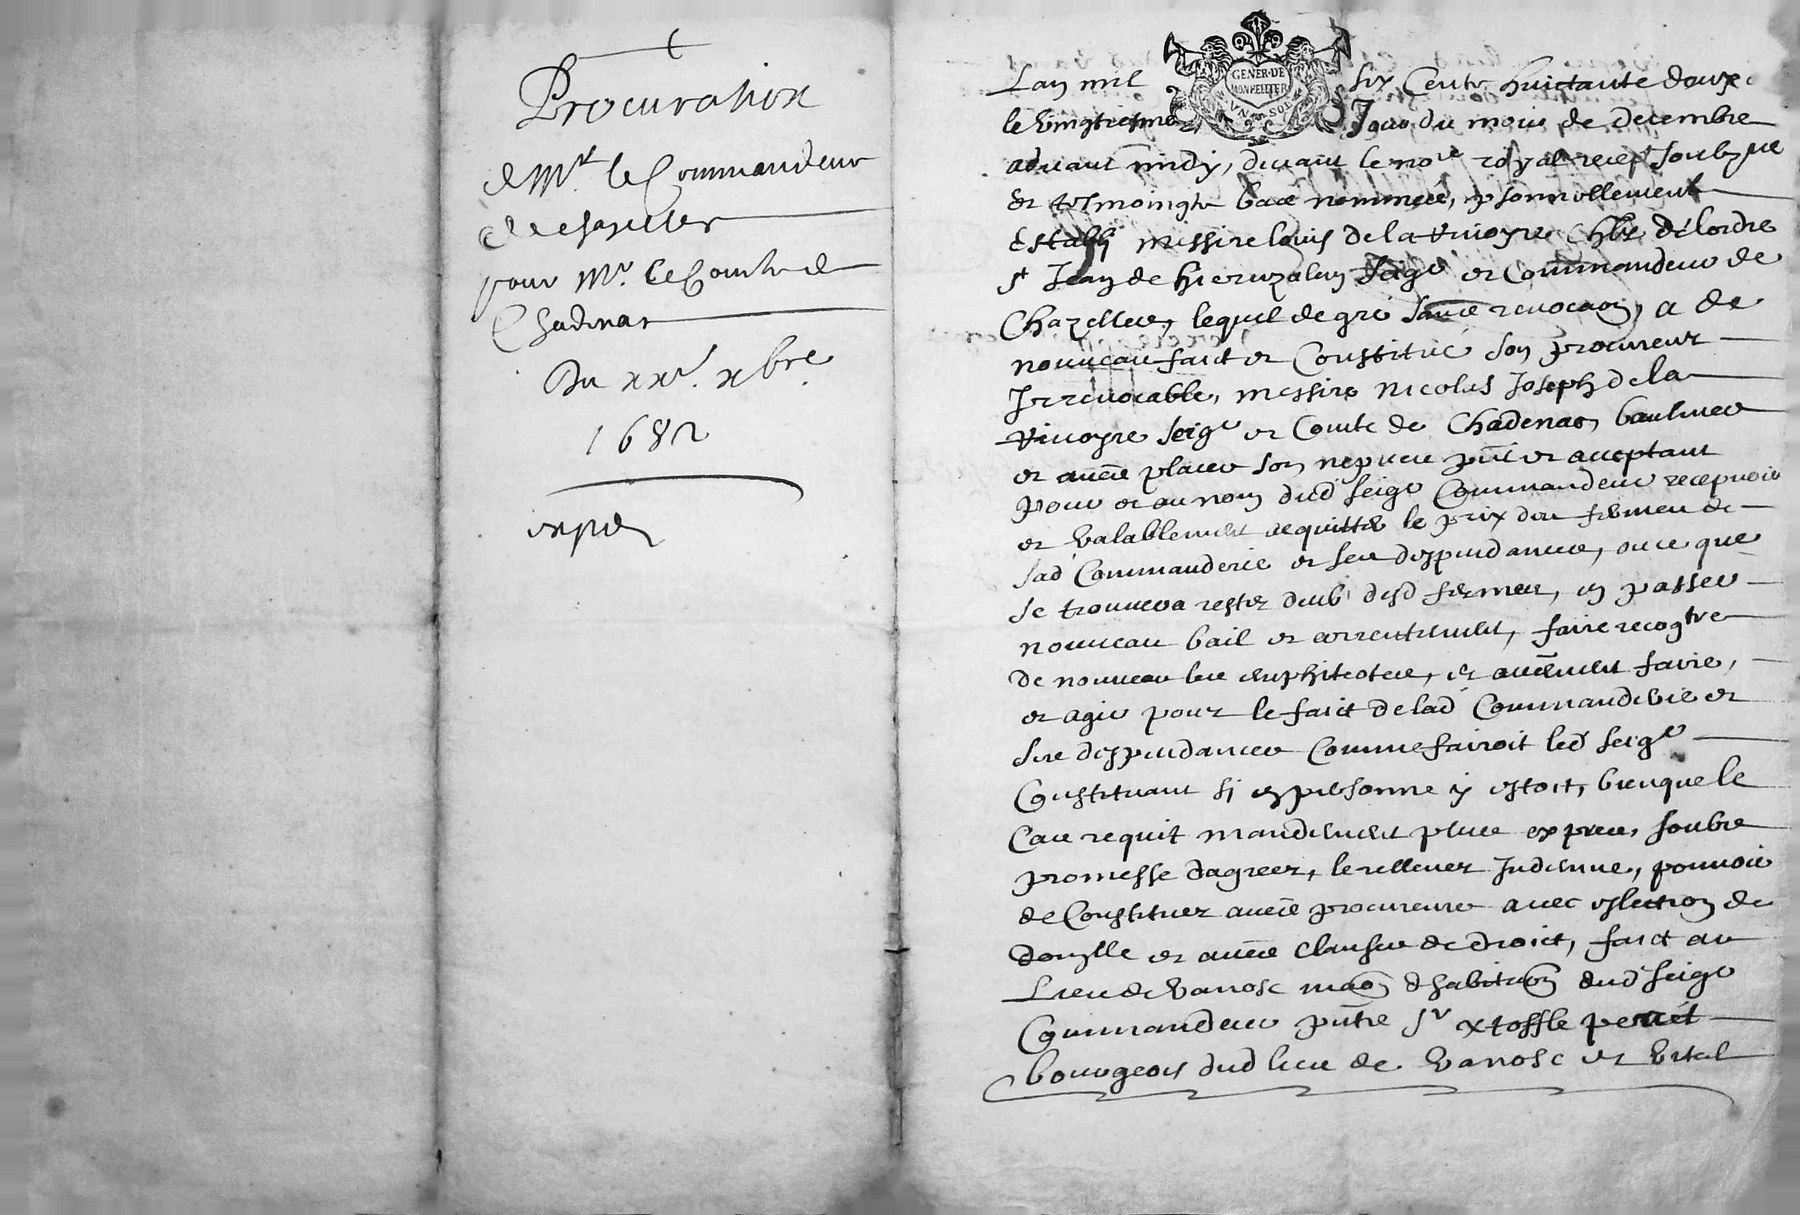 Procuration
de Mr. le Commandeur
de chazelles
pour Mr. le Comte de
Chadenac
Du xxe. xbre.
1682
expée
Lan mil six Cents huictante deux
GENER.DE
MONPELLIER
VN SOL
le vingtiesme Jour du mois de decembre
advant midy, devant le nore royal recep soubzne
et tesmoingts bace nommées, personnellement
Establi messire louis de la Rivoyre Chlr de lordre
st Jean de hieruzalem seigr et Commandeur de
Chazelles, lequel de gre sance revocaon, a de
nouveau faict et Constitué son procureur
Irrevocable, messire nicolas Joseph de la
Rivoyre seigr et Comte de Chadenac, baulmes
et autre places son nepveu pnt et acceptant
pour et au nom dud seigr Commandeur recepvoir
et valablement acquitter le prix des fermes de
sad Commanderie et ses despendances, ou ce que
se trouvera rester deub desd fermes, en passer
nouveau bail et arrentement, faire recogtre
de nouveau les emphiteotes, et autrement faire,
et agir pour le faict de lad Commanderie et
ses despendances Comme fairoit led seigr
Constituant si en personne y estoit, bien que le
Cas requit mandement plus expres, soubs
promesse dagreer, le rellever Indemne, pouvoir
de Constituer autre procureurs avec eslection de
domylle et autre clauses de droict, faict au
Lieu de vanosc maon dhabitaon dud seigr
Commandeur pntz sr xtoffle perret
bourgeois dud lieu de vanosc et vital